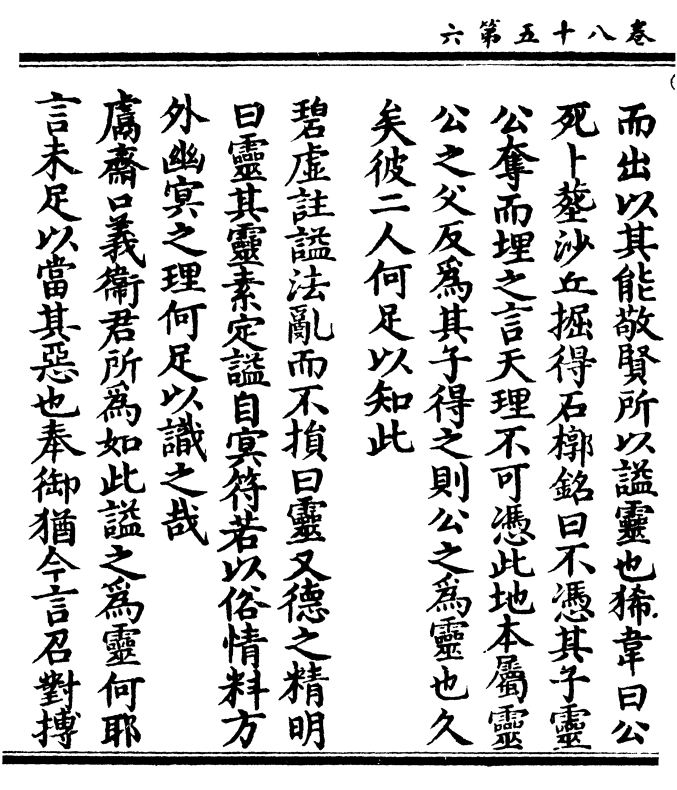 卷八十五第六
而出以其能敬賢所以謚靈也狶韋曰公
死卜塟沙丘掘得石槨銘曰不憑其子靈
公奪而埋之言天理不可憑此地本屬靈
公之父反爲其子得之則公之爲靈也久
矣彼二人何足以知此
碧虛註謚法亂而不損曰靈又德之精明
曰靈其靈素定謚自冥符若以俗情料方
外幽冥之理何足以識之哉
鬳齋口義衞君所爲如此謚之爲靈何耶
言未足以當其惡也奉御猶今言召對搏